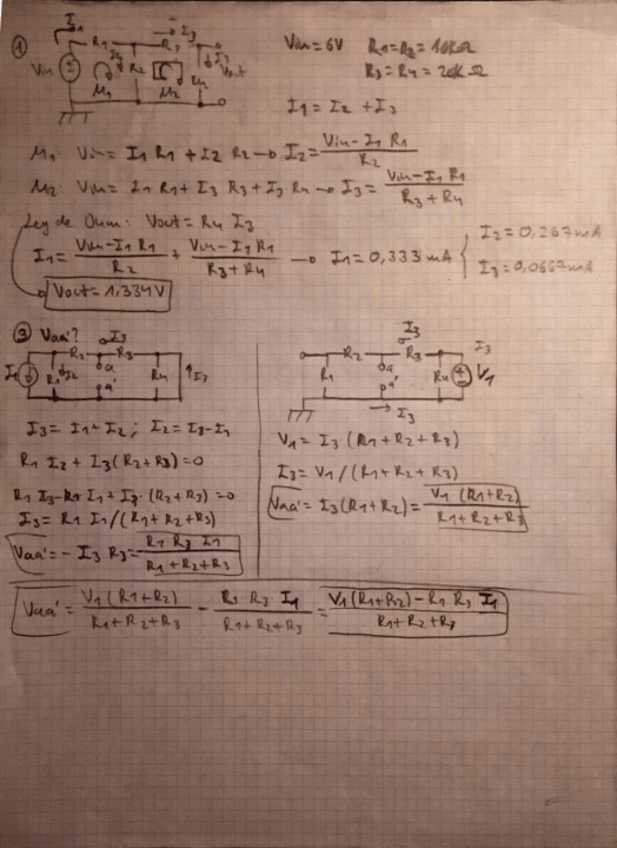 ①
I1
R1
R3
I3
Vin
M1
R2
M2
R4
Vout
Vin = 6V R1=R2 = 10KΩ
R3=R4 = 20KΩ
I1 = I2 + I3
M1: Vin = I1 R1 + I2 R2 → I2 = (Vin - I1 R1) / R2
M2: Vin = I1 R1 + I3 R3 + I3 R4 → I3 = (Vin - I1 R1) / (R3 + R4)
Ley de Oum: Vout = R4 I3
I1 = (Vin - I1 R1) / R2 + (Vin - I1 R1) / (R3 + R4) → I1 = 0,333 mA { I2 = 0,267 mA
I3 = 0,0667 mA
Vout = 1,334 V
③ Vaa'?
I3
R2 a R3
I1 R1 I2 a' R4 I3
I3 = I1 + I2 ; I2 = I3 - I1
R1 I2 + I3 (R2 + R3) = 0
R1 I3 - R1 I1 + I3 · (R2 + R3) = 0
I3 = R1 I1 / (R1 + R2 + R3)
Vaa' = - I3 R3 = R1 R3 I1 / (R1 + R2 + R3)
I3
R2 a R3 I3
R1 a' R4 V1
I3
V1 = I3 · (R1 + R2 + R3)
I3 = V1 / (R1 + R2 + R3)
Vaa' = I3 (R1 + R2) = V1 (R1 + R2) / (R1 + R2 + R3)
Vaa' = V1 (R1 + R2) / (R1 + R2 + R3) - R1 R3 I1 / (R1 + R2 + R3) = (V1 (R1 + R2) - R1 R3 I1) / (R1 + R2 + R3)